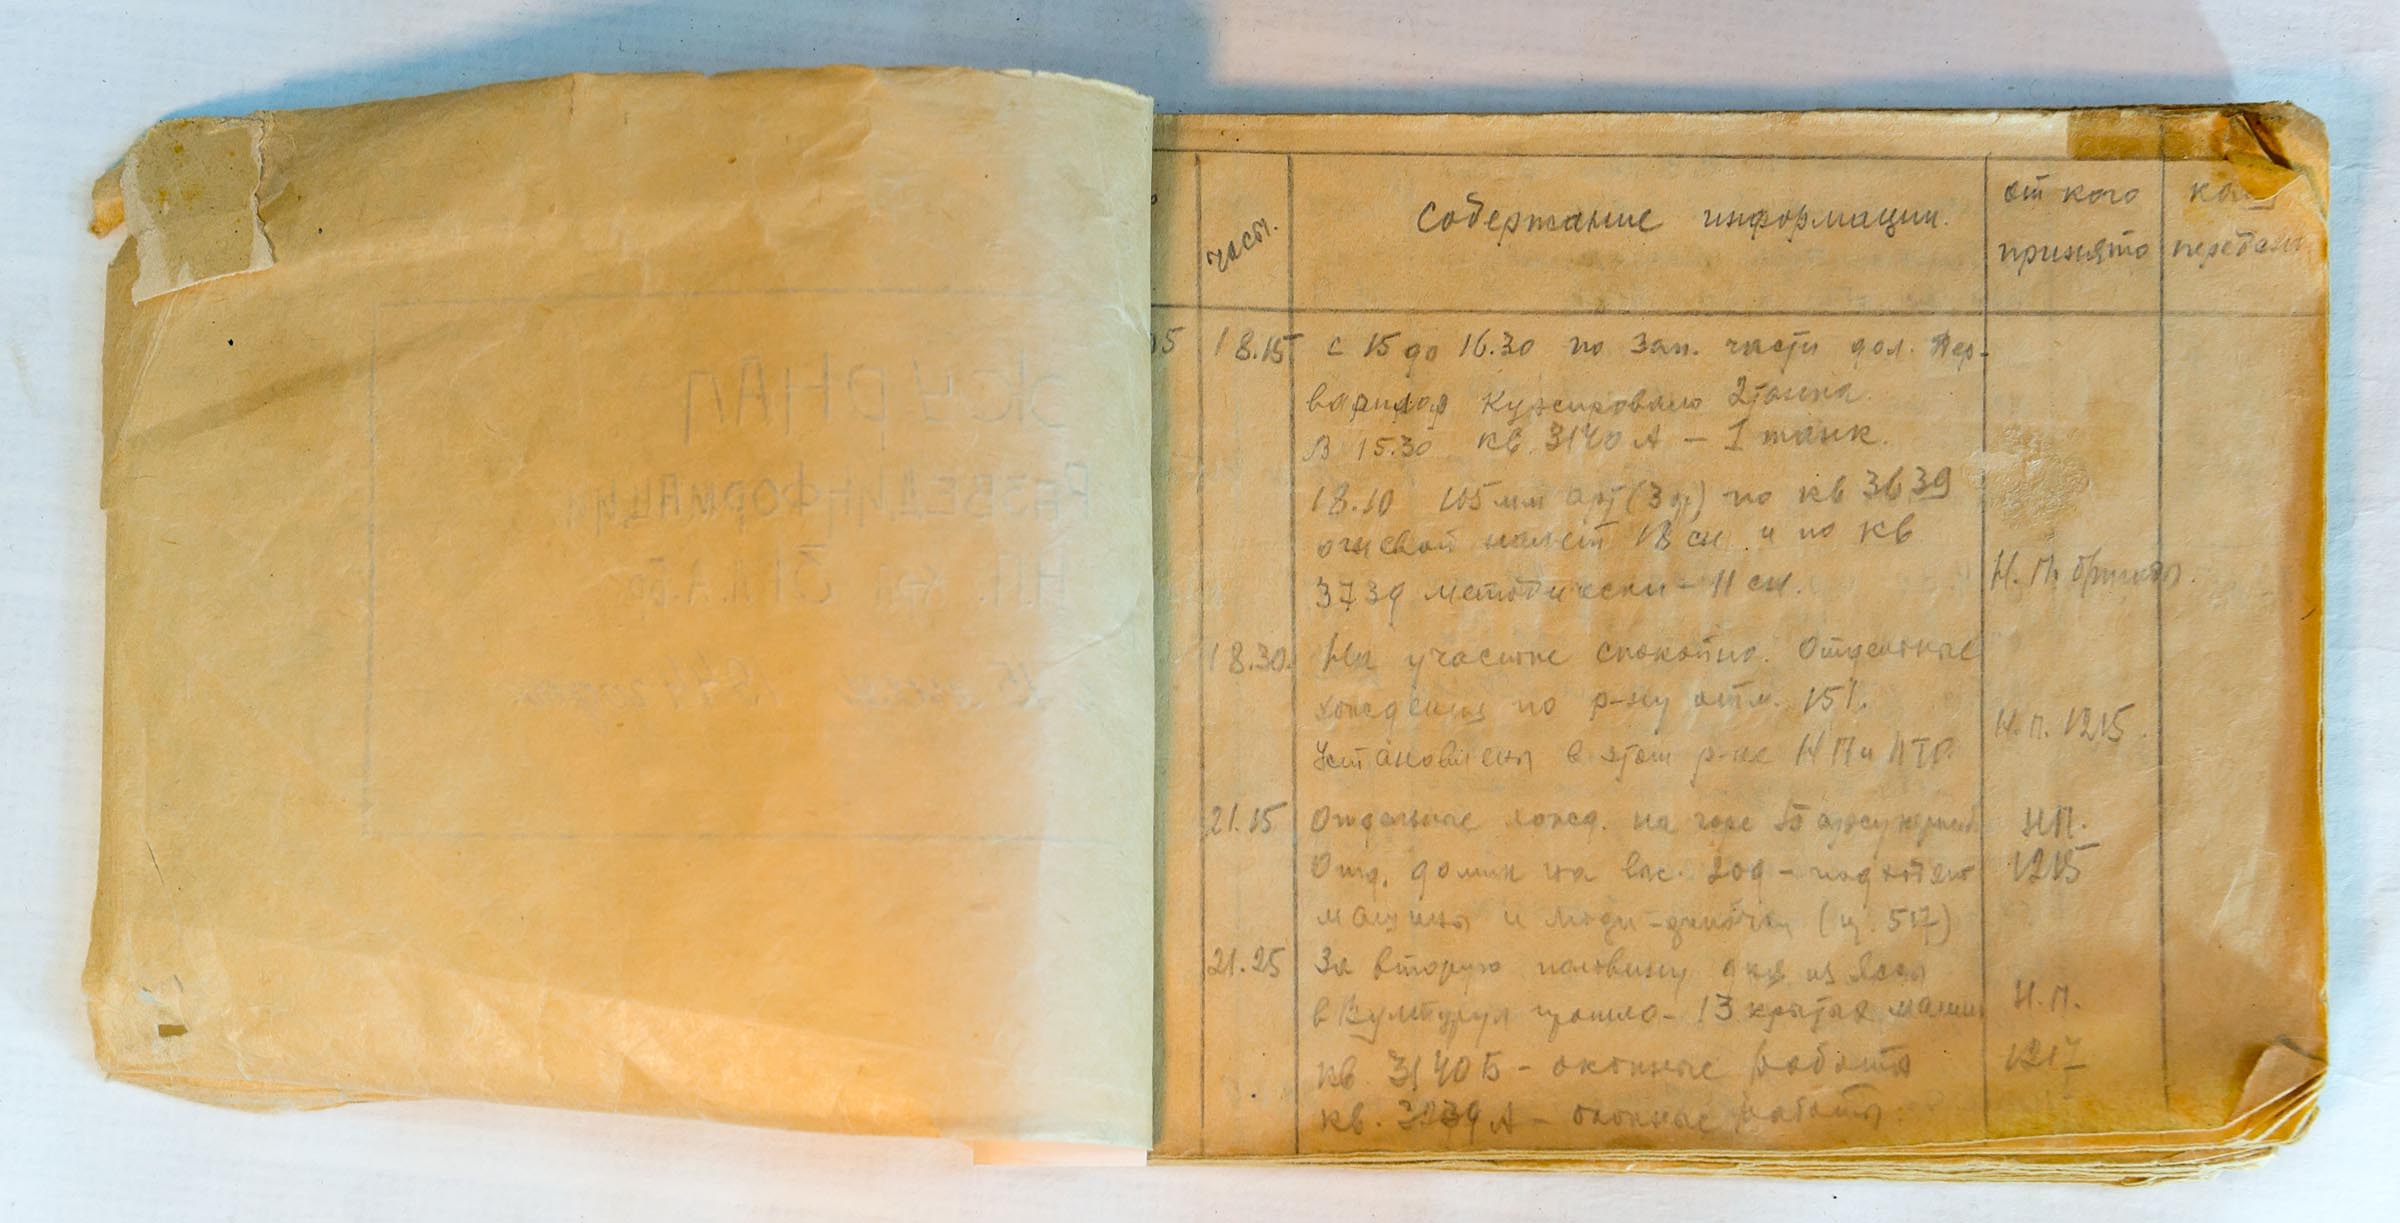 ЖУРНАЛ
РАЗВЕДИНФОРМАЦИИ
Н.П.
1944 года
часы.
Содержание информации.
от кого
принято
передано
18.15 с 15 до 16.30 по зап. части дол.
2 танка.
В 15.30 кв. 3140 А – I танк.
18.10 105 мм арт (3 ор) по кв 3639
огневой налет 18 сн. и по кв
3739 методически – 11 сн.
Н.П. бригады.
18.30. На участке спокойно. Отдельные
хождения по р-ну отм. 151.
Н.П. 1215.
Установлены в этом р-не НП и ПТР.
21.15 Отдельные хожд. на горе
НП.
Отд. домик на выс. 209 – подходят
1215
машины и люди – (ц. 517)
21.25 За вторую половину дня из Яссы
Н.П.
в прошло – 13 крытых машин
1217
кв. 3140 Б – окопные работы
кв. А – окопные работы.